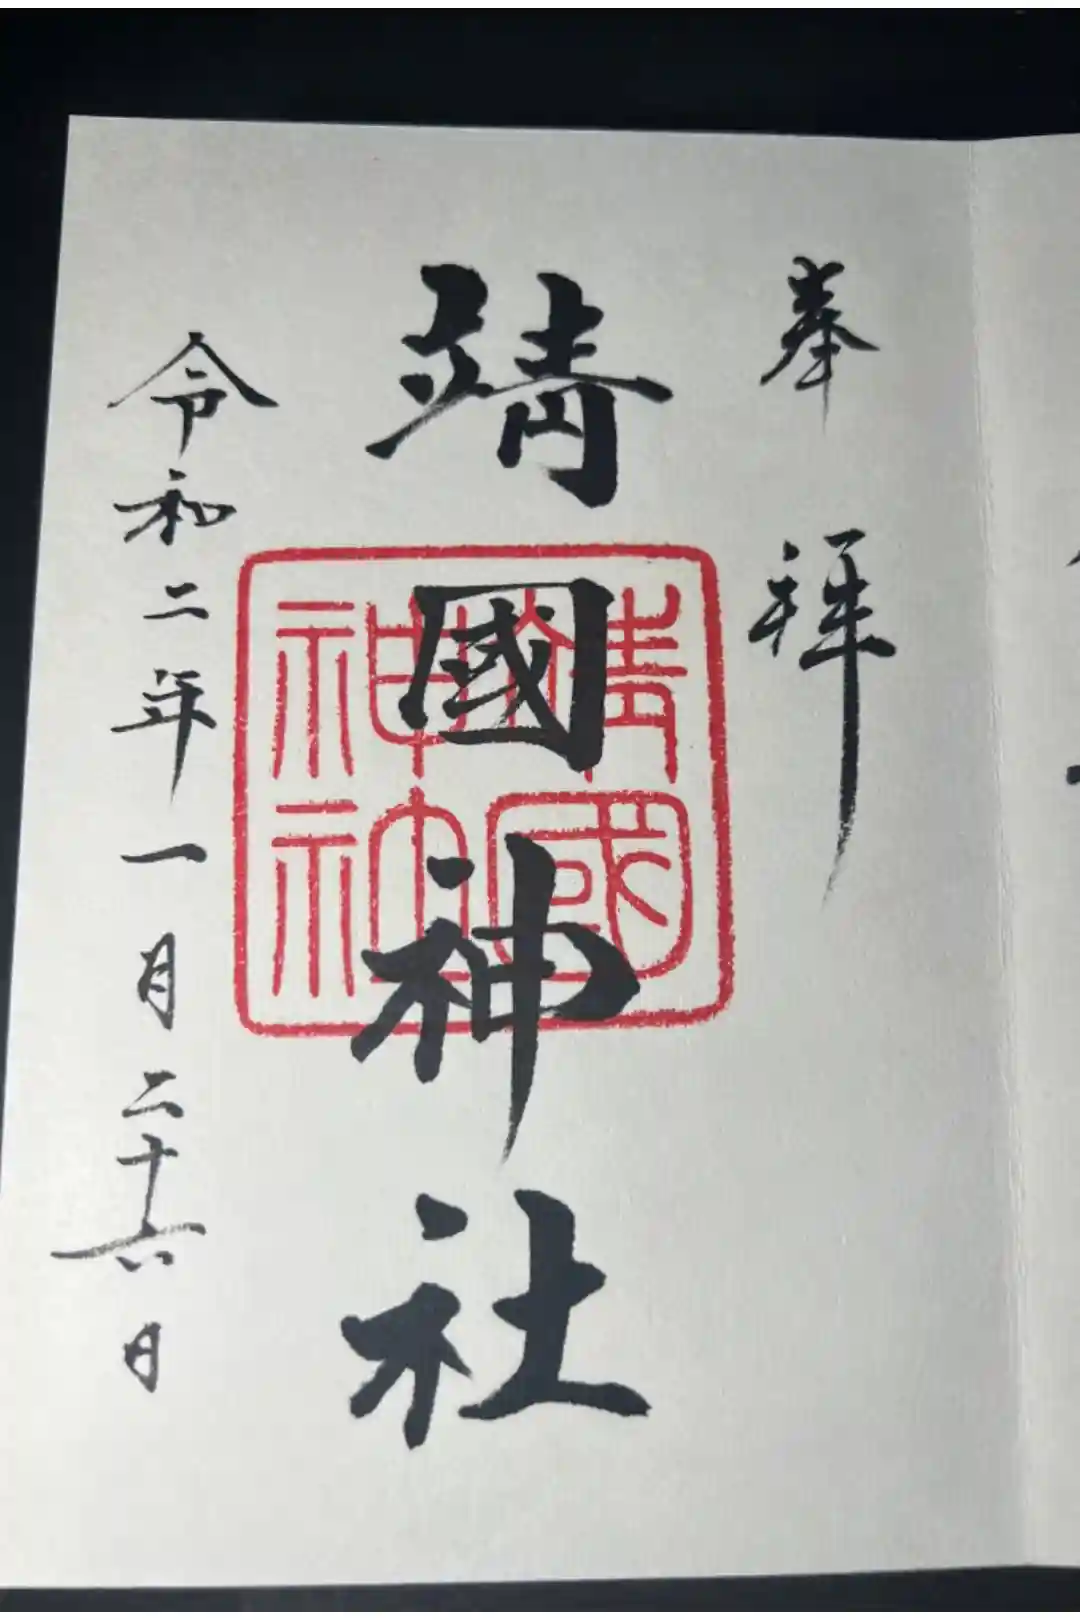 奉拝
靖國神社
靖國神社
令和二年一月二十六日